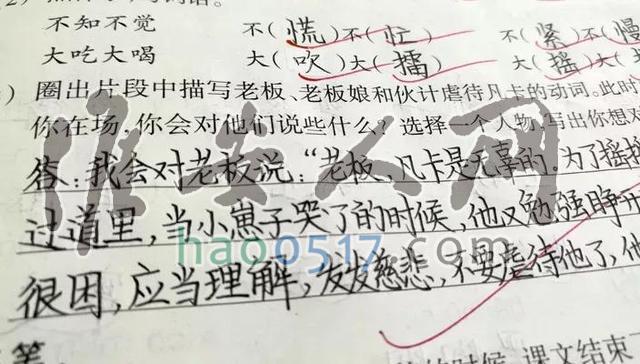 不知不觉 不(慌)不(忙) 不(紧)不(慢
大吃大喝 大(吹)大(擂) 大(摇)大
)圈出片段中描写老板、老板娘和伙计虐待凡卡的动词。此时
你在场,你会对他们说些什么?选择一个人物,写出你想对
答:我会对老板说:“老板,凡卡是无辜的,为了摇摇
过道里,当小崽子哭了的时候,他又勉强睁
很困,应当理解,发发慈悲,不要虐待他了,他
淮安人网
hao0517.com
课文结束